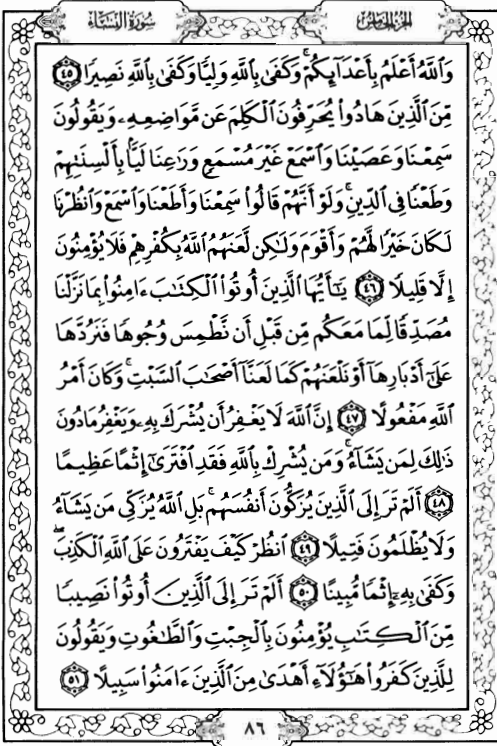 سورة النساء
الجزء الخامس
وَاللَّهُ أَعْلَمُ بِأَعْدَائِكُمْ ۚ وَكَفَىٰ بِاللَّهِ وَلِيًّا وَكَفَىٰ بِاللَّهِ نَصِيرًا ٤٥
مِّنَ الَّذِينَ هَادُوا يُحَرِّفُونَ الْكَلِمَ عَن مَّوَاضِعِهِ وَيَقُولُونَ
سَمِعْنَا وَعَصَيْنَا وَاسْمَعْ غَيْرَ مُسْمَعٍ وَرَاعِنَا لَيًّا بِأَلْسِنَتِهِمْ
وَطَعْنًا فِي الدِّينِ ۚ وَلَوْ أَنَّهُمْ قَالُوا سَمِعْنَا وَأَطَعْنَا وَاسْمَعْ وَانظُرْنَا
لَكَانَ خَيْرًا لَّهُمْ وَأَقْوَمَ وَلَٰكِن لَّعَنَهُمُ اللَّهُ بِكُفْرِهِمْ فَلَا يُؤْمِنُونَ
إِلَّا قَلِيلًا ٤٦ يَا أَيُّهَا الَّذِينَ أُوتُوا الْكِتَابَ ءَامِنُوا بِمَا نَزَّلْنَا
مُصَدِّقًا لِّمَا مَعَكُم مِّن قَبْلِ أَن نَّطْمِسَ وُجُوهًا فَنَرُدَّهَا
عَلَىٰ أَدْبَارِهَا أَوْ نَلْعَنَهُمْ كَمَا لَعَنَّا أَصْحَابَ السَّبْتِ ۚ وَكَانَ أَمْرُ
اللَّهِ مَفْعُولًا ٤٧ إِنَّ اللَّهَ لَا يَغْفِرُ أَن يُشْرَكَ بِهِ وَيَغْفِرُ مَا دُونَ
ذَٰلِكَ لِمَن يَشَاءُ ۚ وَمَن يُشْرِكْ بِاللَّهِ فَقَدِ افْتَرَىٰ إِثْمًا عَظِيمًا
٤٨ أَلَمْ تَرَ إِلَى الَّذِينَ يُزَكُّونَ أَنفُسَهُم ۚ بَلِ اللَّهُ يُزَكِّي مَن يَشَاءُ
وَلَا يُظْلَمُونَ فَتِيلًا ٤٩ انظُرْ كَيْفَ يَفْتَرُونَ عَلَى اللَّهِ الْكَذِبَ ۖ
وَكَفَىٰ بِهِ إِثْمًا مُّبِينًا ٥٠ أَلَمْ تَرَ إِلَى الَّذِينَ أُوتُوا نَصِيبًا
مِّنَ الْكِتَابِ يُؤْمِنُونَ بِالْجِبْتِ وَالطَّاغُوتِ وَيَقُولُونَ
لِلَّذِينَ كَفَرُوا هَٰؤُلَاءِ أَهْدَىٰ مِنَ الَّذِينَ ءَامَنُوا سَبِيلًا ٥١
٨٦